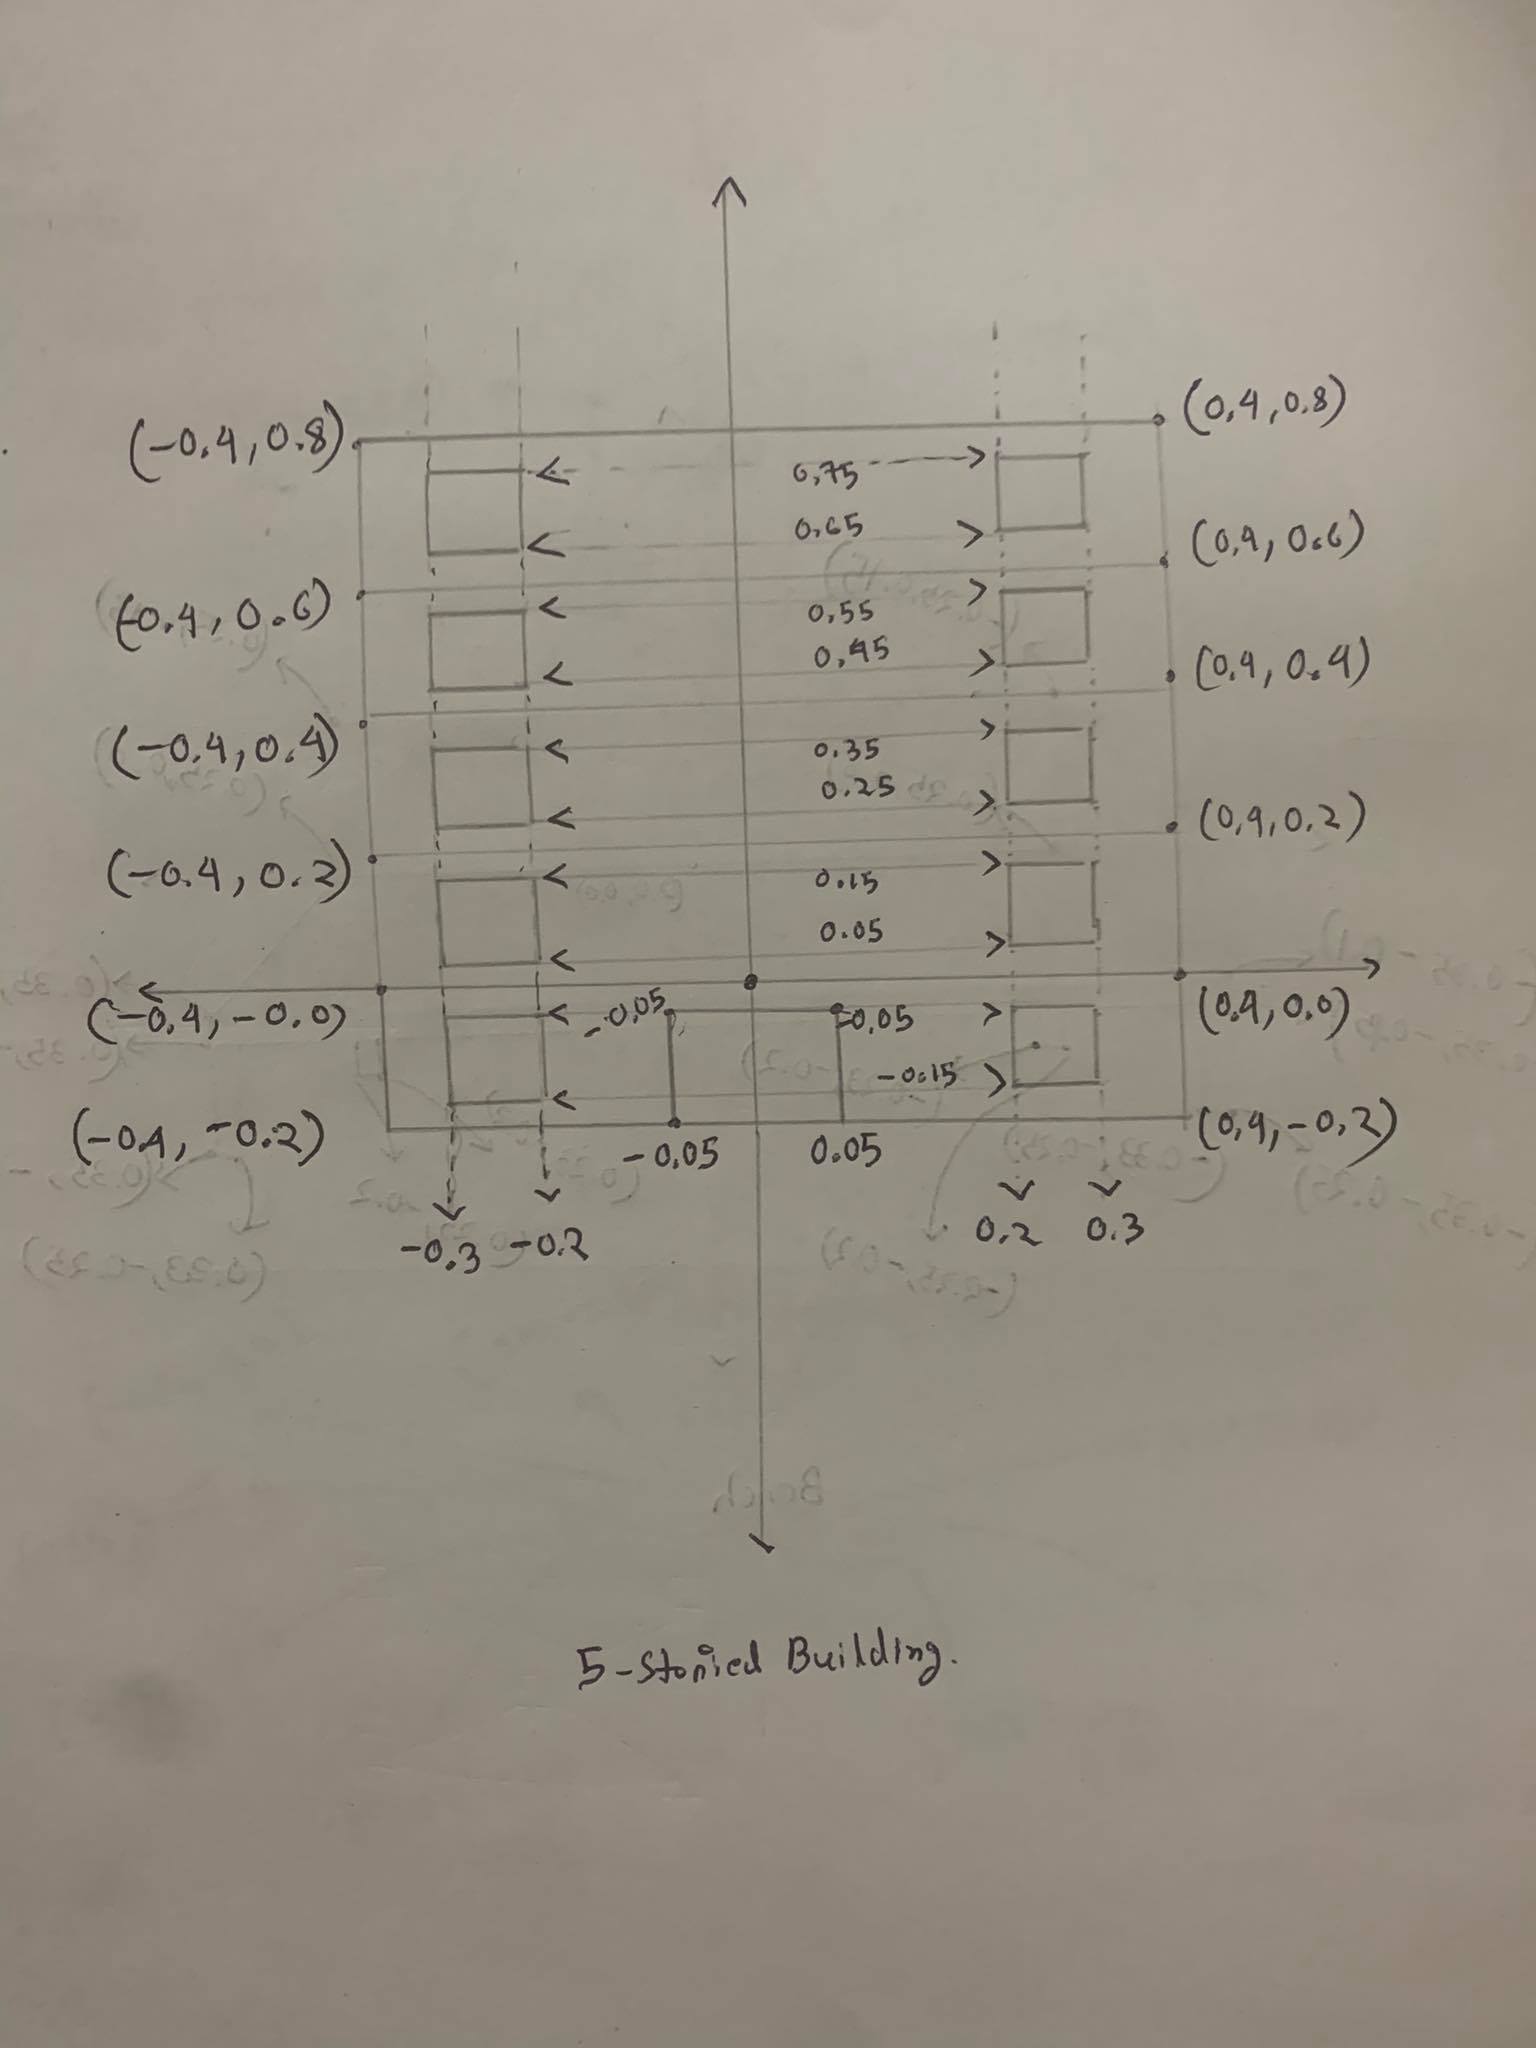 (-0.4, 0.8) (0.4, 0.8)
0.75
0.65
(0.4, 0.6)
(-0.4, 0.6)
0.55
0.45
(0.4, 0.4)
(-0.4, 0.4)
0.35
0.25
(0.4, 0.2)
(-0.4, 0.2)
0.15
0.05
(-0.4, -0.0) -0.05 -0.05 (0.4, 0.0)
-0.15
(-0.4, -0.2) -0.05 0.05 (0.4, -0.2)
-0.3 -0.2 0.2 0.3
5-Storied Building.